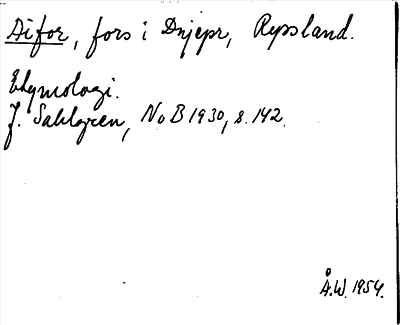 Aifor, fors i Dnjepr, Ryssland.
Etymologi.
J. Sahlgren, NoB 1930, s. 142.
Å.W. 1954.